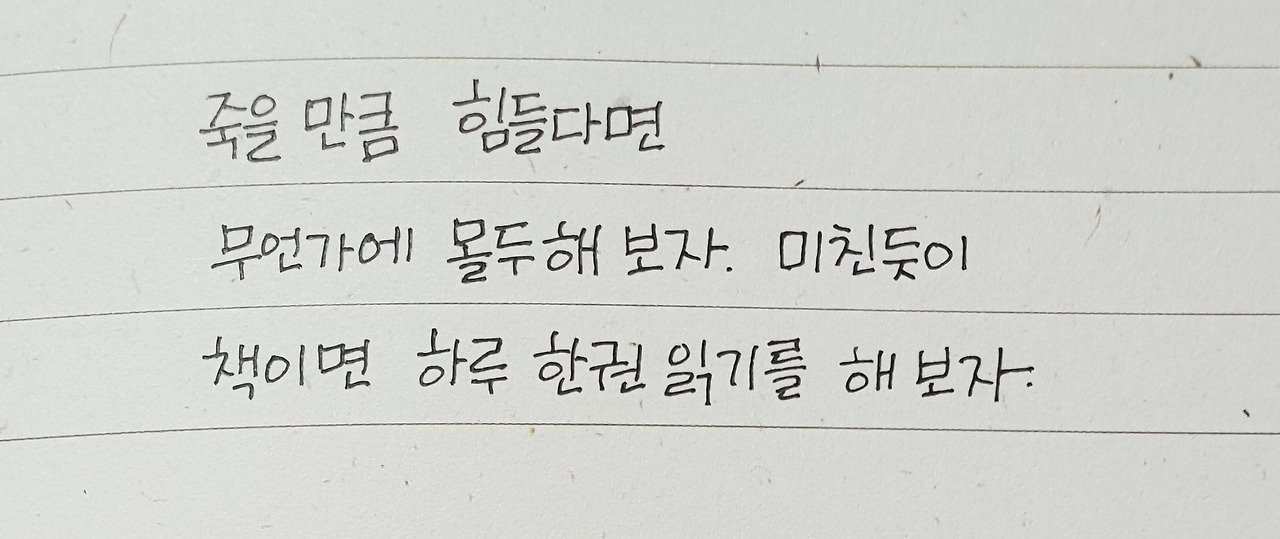 죽을 만큼 힘들다면
무언가에 몰두해 보자. 미친듯이
책이면 하루 한권 읽기를 해 보자.